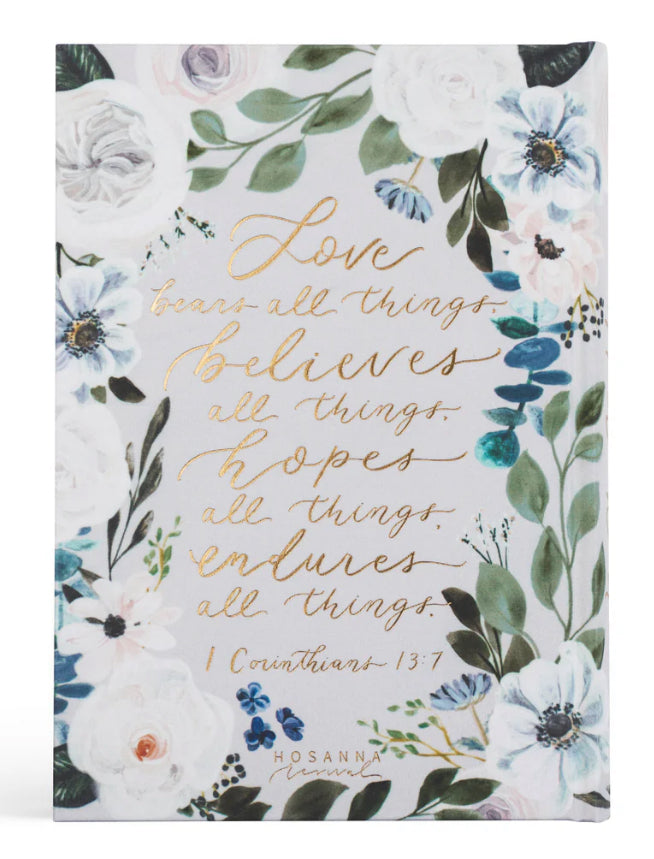 Love
bears all things,
believes
all things,
hopes
all things,
endures
all things.
1 Corinthians 13:7
HOSANNA
revival